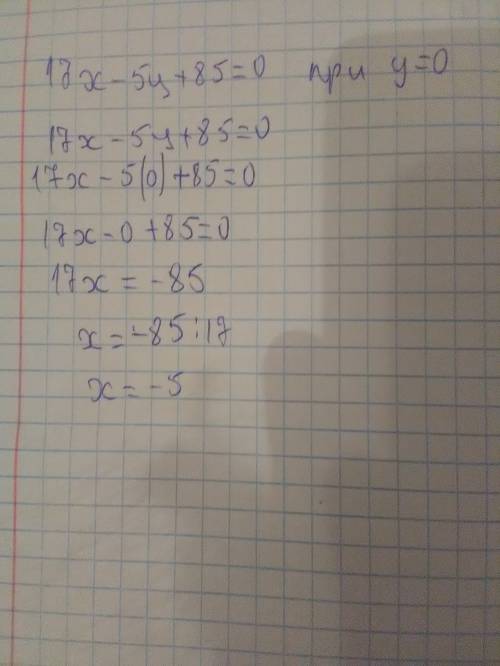 17x - 5y + 85 = 0 при y = 0
17x - 5y + 85 = 0
17x - 5(0) + 85 = 0
17x - 0 + 85 = 0
17x = -85
x = -85 : 17
x = -5